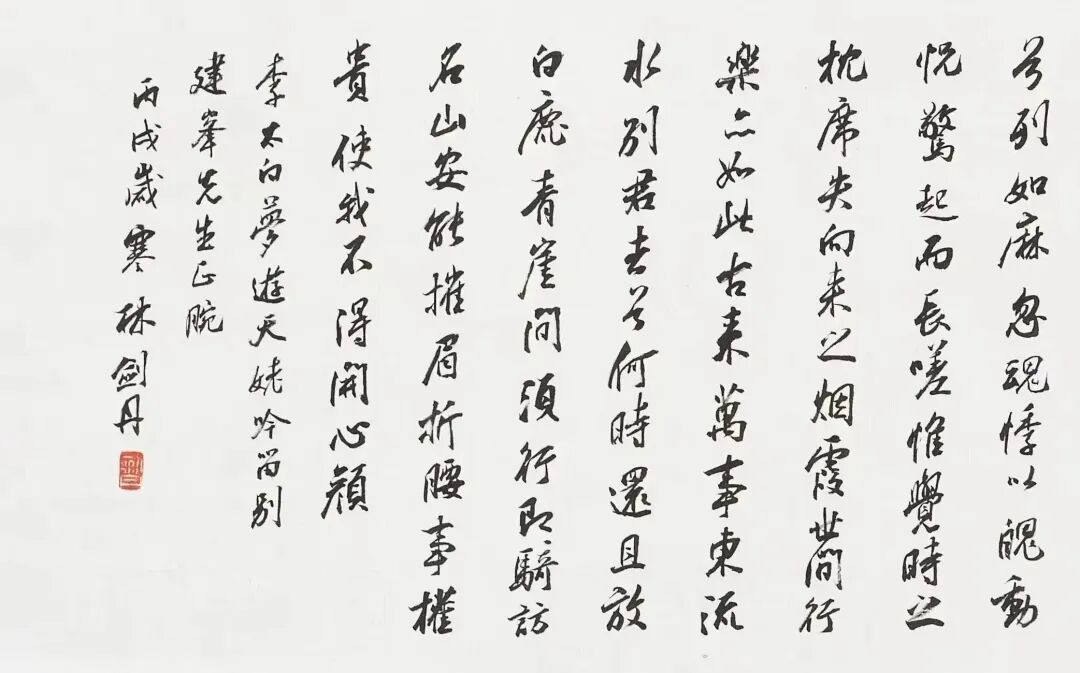 兮列如麻忽魂悸以魄動
怳驚起而長嗟惟覺時之
枕席失向来之烟霞世間行
樂亦如此古来萬事東流
水别君去兮何時還且放
白鹿青崖間須行即騎訪
名山安能摧眉折腰事權
貴使我不得開心顔
李太白夢遊天姥吟留别
建峯先生正腕
丙戌歲寒林劍丹